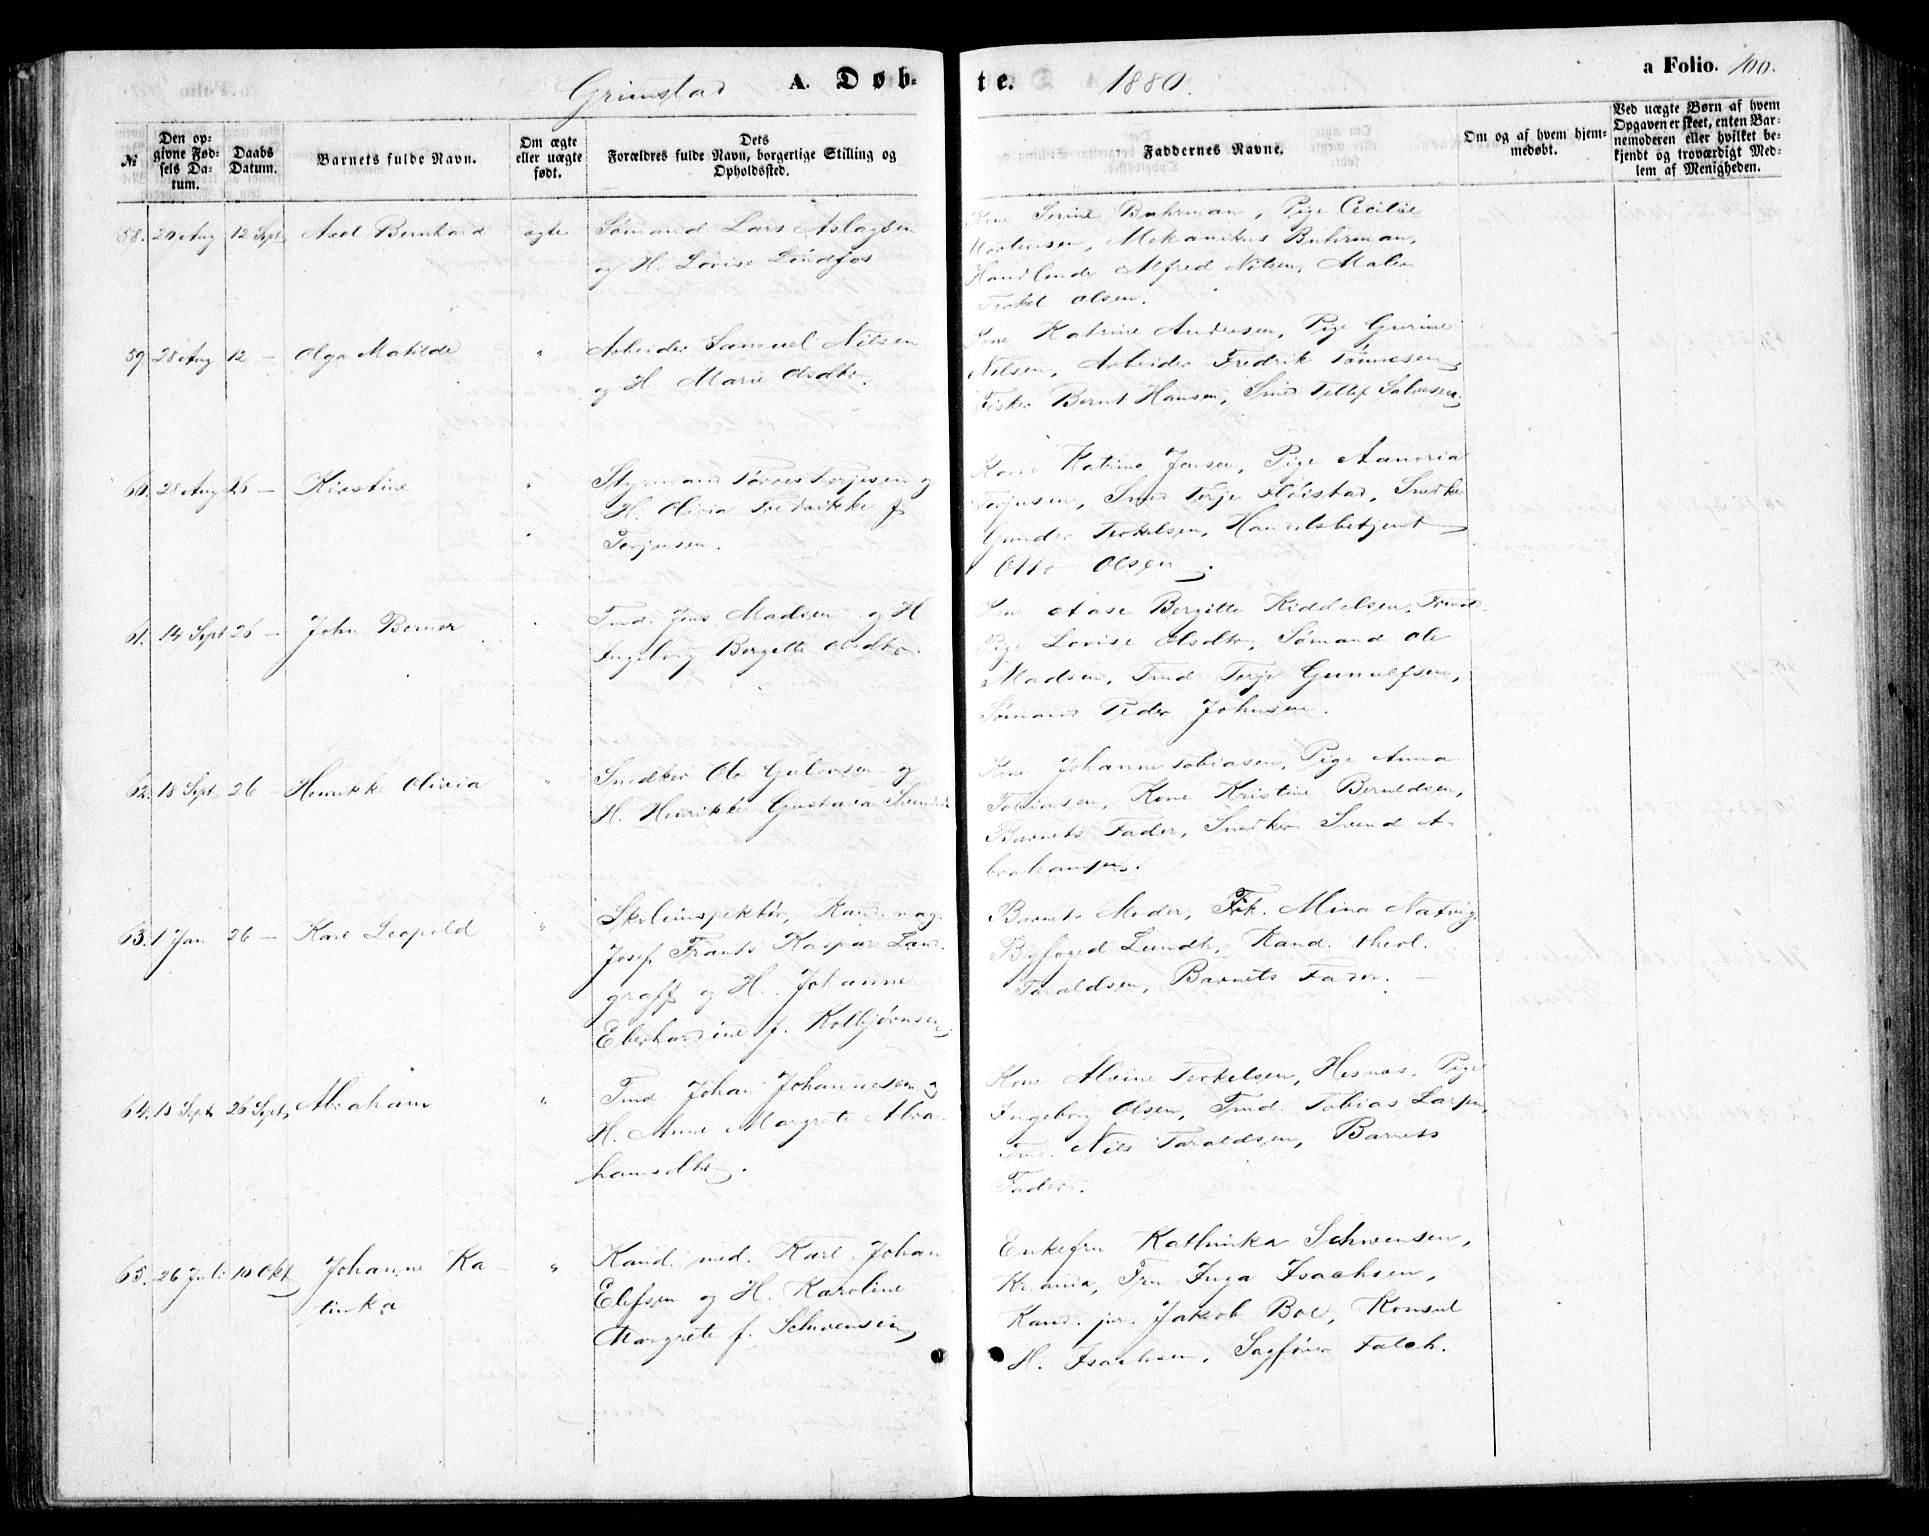 Grimstad A. Døb-
te. 1880.
a Folio. 100.
№
Den op-
givne Fød-
sels Da-
tum.
Daabs
Datum.
Barnets fulde Navn.
Om ægte
eller uægte
født.
Dets
Forældres fulde Navn, borgerlige Stilling og
Opholdssted.
Faddernes Navne.
Om og af hvem hjem-
medøbt.
Ved uægte Børn af hvem
Opgaven er skeet, enten Bar-
nemoderen eller hvilket be-
kjendt og troværdigt Med-
lem af Menigheden.
58. 20 Aug 12 Sept Axel Bernhard ægte Sømand Lars Aslagsen
og H. Lovise Lindfos
Kone Serine Buhrman, Pige Cecilie
Mortensen, Mekanikus Buhrman,
Handlende Alfred Nilsen, Maler
Terkel Olsen.
59. 28 Aug 12 — Olga Matilde " Arbeider Samuel Nilsen
og H. Marie Olsdtr.
Kone Katrine Andersen, Pige Gurine
Nilsen, Arbeider Fredrik Tønnesen,
Fisker Bernt Hansen, Smed Tellef Salvesen.
60. 28 Aug 26 — Kirstine " Styrmand Tørres Terjesen og
H. Olivia Fredrikke f.
Terjesen.
Kone Katrine Jensen, Pige Aanoria
Terjesen, Smed Terje Fløistad, Snedker
Gunder Terkelsen, Handelsbetjent
Otto Olsen.
61. 14 Sept 26 — John Berner " Tmd. Jens Madsen og H
Ingeborg Bergitte Olsdtr.
Kone Aase Bergitte Kiddelsen,
Pige Lovise Olsdtr, Sømand Ole
Madsen, Tmd Terje Gunulfsen,
Sømand Peder Johnsen.
62. 18 Sept 26 — Henrikke Olivia " Snedker Ole Gulovsen og
H. Henrikke Gustava
Kone Johanne Tobiasen, Pige Anna
Tobiasen, Kone Kristine Berntdsen,
Barnets Fader, Snedker Svend A-
brahamsen.
63. 1 Jan 26 — Karl Leopold " Skoleinspektør, Kand. mag.
Josef Frants Kaspar Land-
graff og H. Johanne
Eberhardine f. Kolbjørnsen.
Barnets Moder, Frk. Mina Natvig,
Byfoged Lundh, Kand. theol.
Taraldsen, Barnets Fader. —
64. 15 Sept 26 Sept, Abraham " Tmd Johan Johannesen og
H. Anne Margrete Abra-
hamsdtr.
Kone Alvine Terkelsen, Hesnæs, Pige
Ingeborg Olsen, Tmd. Tobias Larsen,
Tmd. Nils Taraldsen, Barnets
Fader.
65. 26 Juli 10 Okt Johanne Ka-
tinka " Kand. med. Karl Johan
Elefsen og H. Karoline
Margrete f. Schwensen
Enkefru Kathinka Schwensen,
Kr.ania, Fru Inga Isachsen,
Kand. jur. Jakob Boe, Konsul
H. Isachsen, Sagfører Falch.